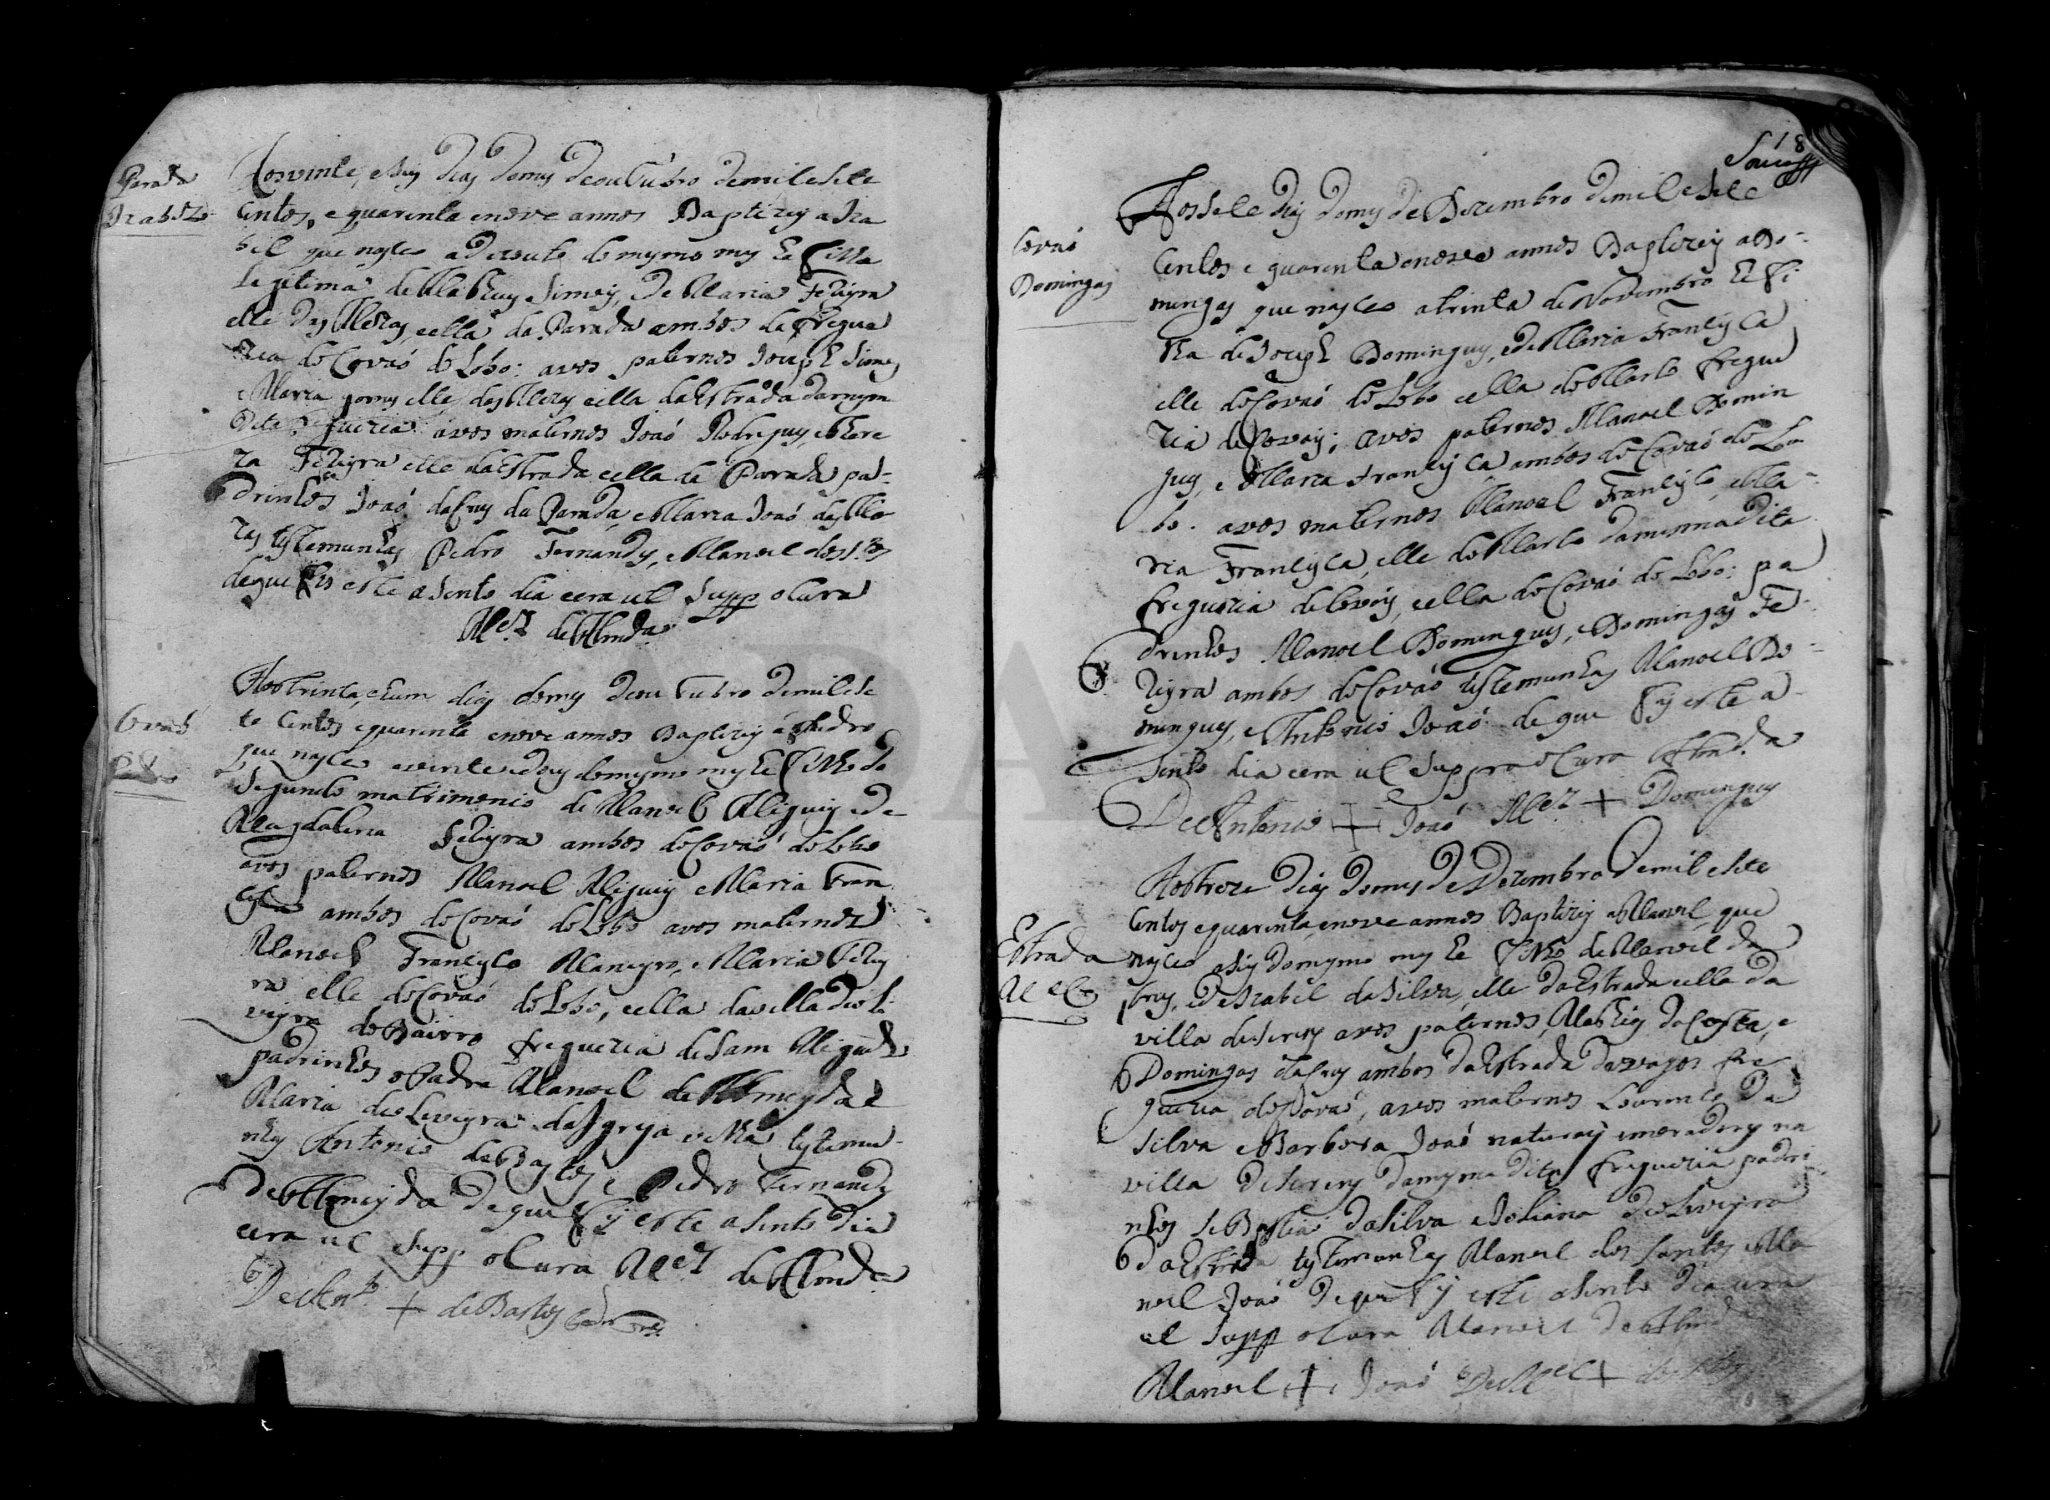 Parada
Izabel
Aos vinte, e seis dias do mes de outubro de mil e sete
centos, e quarenta e nove annos Baptizey a Iza
bel que nasceo a dezoute do mesmo mes he filha
legitima de Matheus Simois, e de Maria Ferreyra
elle das Mezas, e ella da Parada ambos da fregue
zia do Covaó do Lobo: avos paternos Joseph Simois
e Maria Gomes elle das Mezas e ella da Estrada da mesma
dita freguezia: avos maternos Joaó Rodrigues, e There
za Ferreyra elle da Estrada e ella da Parada pa-
drinhos Joaó da Crus da Parada, e Maria Joaó das Me
zas testemunhas Pedro Fernandes, e Manoel dos S.tos
de que fis este asento dia e era ut supp o Cura
M.el de Almda
Covaó
P.o
Aos trinta, e hum dias do mes de outubro de mil e se
te centos e quarenta e nove annos Baptizey a Pedro
que nasceo a vinte e dous do mesmo mes he filho do
segundo matrimonio de Manoel Migueis e de
Magdalena Ferreyra ambos do Covaó do Lobo
avos paternos Manoel Migueis e Maria Fran
cisca ambos do Covaó do Lobo avos maternos
Manoel Francisco Maneyro, e Maria Ferrey
ra elle do Covaó do Lobo, e ella da villa de oli
veyra do Bairro freguezia de Sam Miguel
padrinhos o Padre Manoel de Almeyda e
Maria de oliveyra da Igreja velha testemu-
nhas Antonio de Bastos e Pedro Fernandes
de Almeyda de que fis este asento dia
era ut supp o Cura M.el de Almda
De Ant.o + de Bastos
8
Aos sete dias do mes de Dezembro de mil e sete
Covaó
Domingas
centos e quarenta e nove annos Baptizey a Do-
mingas que nasceo a trinta de Novembro he fi
lha de Joseph Domingues, e de Maria Francisca
elle do Covaó do Lobo e ella do Marco fregue
zia de Covaó; avos paternos Manoel Domin
gues, e Maria Francisca ambos do Covaó do Lo
bo. avos maternos Manoel Francisco, e Ma
ria Francisca, elle do Marco da mesma dita
freguezia de Covaó, e ella do Covaó do Lobo: pa
drinhos Manoel Domingues, e Domingas Fe
rreyra ambos do Covaó testemunhas Manoel Do-
mingues, e Antonio Joaó de que fis este a
sento dia e era ut supra o Cura Almda
De Antonio + Joaó M.el + Domingues
Aos treze dias do mes de Dezembro de mil e sete
centos e quarenta e nove annos Baptizey a Manoel que
Estrada
M.el
nasceo a seis do mesmo mes he filho de Manoel da
Crus, e de Izabel da Silva, elle da Estrada e ella da
villa de avos paternos, Mathias da Costa, e
Domingas da Crus ambos da Estrada de vagos fre
guezia do Covaó, avos maternos Lourenco da
Silva e Barbora Joaó naturais e moradores na
villa de da mesma dita freguezia padri
nhos Sebastiaó da Silva e Joliana de oliveyra
da Estrada testemunhas Manoel dos Santos e Ma
noel Joaó de que fis este asento dia e era
ut supp o Cura Manoel de Almda
Manoel + Joaó De M.el +